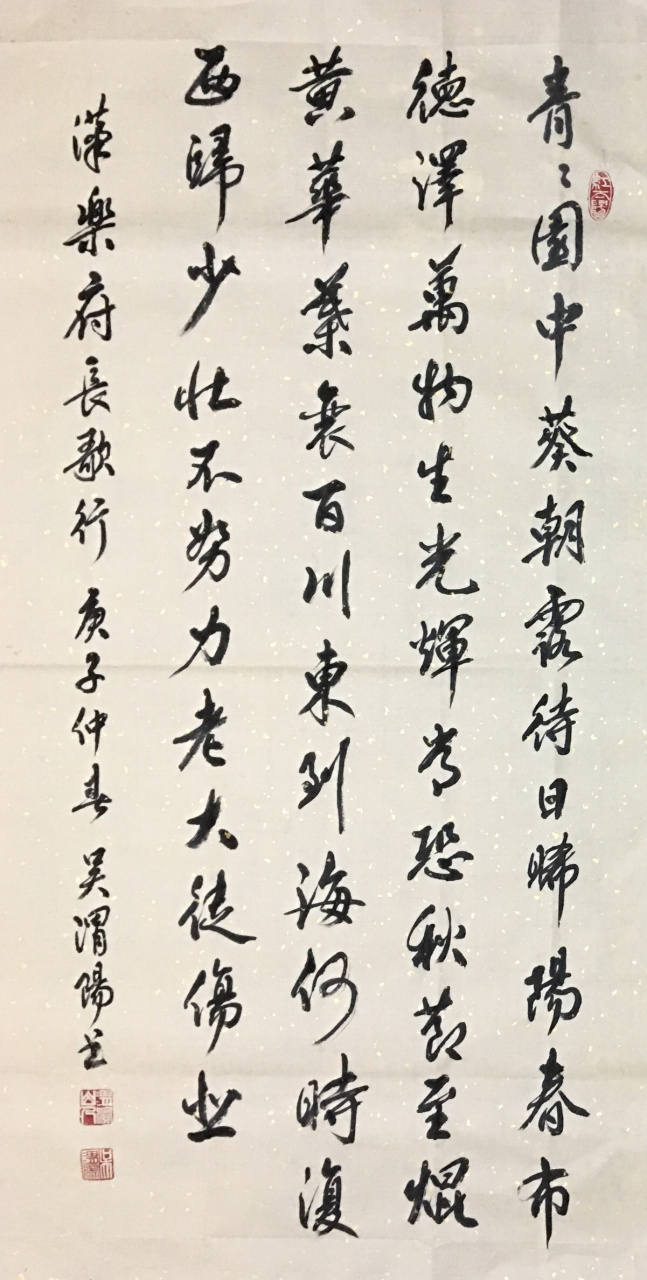 青々園中葵朝露待日晞陽春布
徳澤萬物生光輝常恐秋節至焜
黄華葉衰百川東到海何時復
西歸少壯不努力老大徒傷悲
漢樂府長歌行 庚子仲春 吳渭陽書